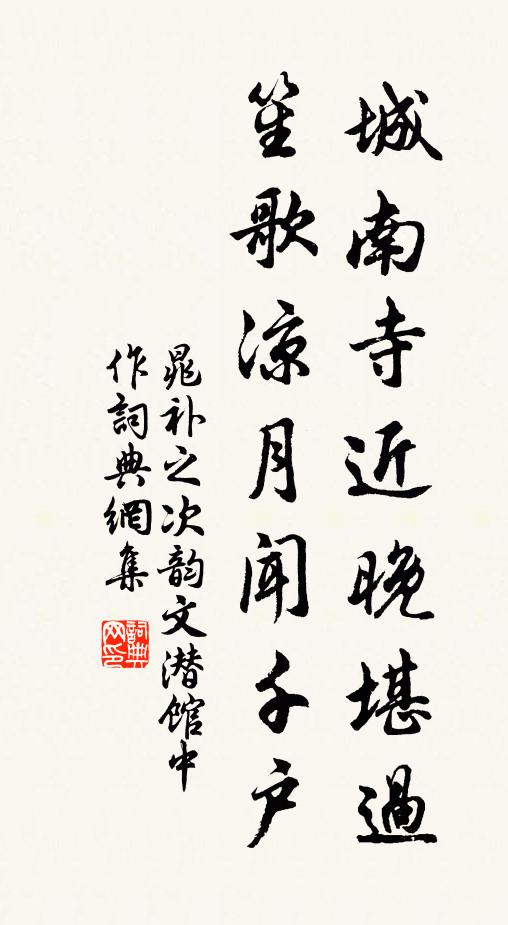 城南寺近晚堪過
笙歌凉月聞千户
晁补之次韵文潜館中
作詞典網集
詞典网印